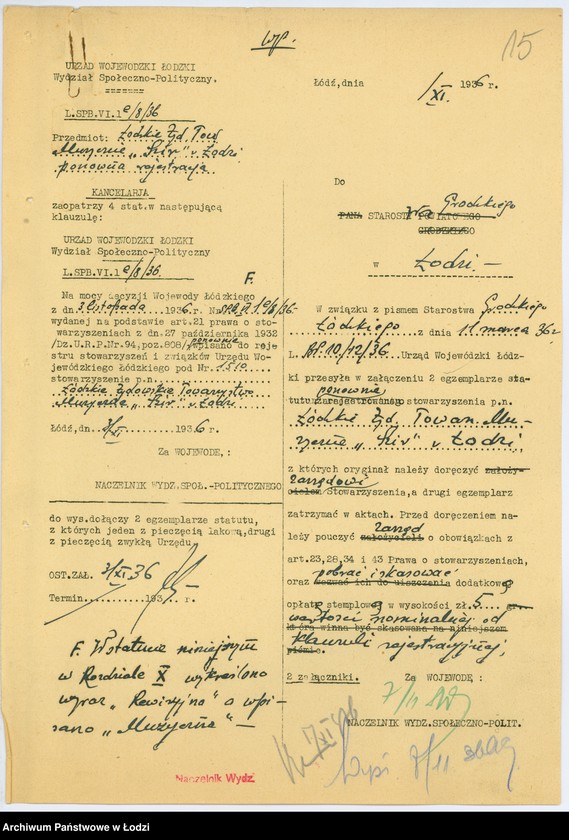 wp.
15
URZĄD WOJEWÓDZKI ŁÓDZKI
Wydział Społeczno-Polityczny.
L.SPB.VI.1e/8/36
Przedmiot: Łódzkie Żyd. Tow.
Muzyczne „Szir” w Łodzi
ponowna rejestracja
KANCELARJA
zaopatrzy 4 stat.w następującą
klauzulę:
URZĄD WOJEWÓDZKI ŁÓDZKI
Wydział Społeczno-Polityczny
L.SPB.VI.1e/8/36.
F.
Na mocy decyzji Wojewody Łódzkiego
z dn. 3 listopada 1936 r. Nr SPB.VI.1e/8/36
wydanej na podstawie art.21 prawa o sto-
warzyszeniach z dn.27 października 1932
/Dz.U.R.P.Nr.94,poz.808/ ponownie wpisano do reje
stru stowarzyszeń i związków Urzędu Wo-
jewódzkiego Łódzkiego pod Nr. 1510
stowarzyszenie p.n.
Łódzkie Żydowskie Towarzystwo
Muzyczne „Szir” w Łodzi
Łódź,dn. 3/XI 1936 r.
Za WOJEWODĘ,:
NACZELNIK WYDZ.SPOŁ.-POLITYCZNEGO
do wys.dołączy 2 egzemplarze statutu,
z których jeden z pieczęcią lakową,drugi
z pieczęcią zwykłą Urzędu
OST.ZAŁ. 3/XI 36
Termin 193 r.
F. W statucie niniejszym
w Rozdziale X wykreślono
wyraz „Rewizyjna” a wpi-
sano „Muzyczna” —
Łódź,dnia /XI. 1936 r.
Do
PANA STAROSTY POWIATOWEGO Grodzkiego
GRODZKIEGO
w Łodzi.—
W związku z pismem Starostwa Grodzkiego
Łódzkiego z dnia 11 marca 36 r.
L. BP.10/12/36. Urząd Wojewódzki Łódz-
ki przesyła w załączeniu 2 egzemplarze sta-
tutu zarejestrowanego ponownie stowarzyszenia p.n.
Łódzkie Żyd. Towarz. Mu-
zyczne „Szir” w Łodzi,
z których oryginał należy doręczyć założy-
cielom Zarządowi Stowarzyszenia,a drugi egzemplarz
zatrzymać w aktach. Przed doręczeniem na-
leży pouczyć założycieli Zarząd o obowiązkach z
art.23,28,34 i 43 Prawa o stowarzyszeniach,
oraz wezwać ich do uiszczenia pobrać i skasować dodatkową
opłatę stemplową w wysokości zł. 5
wartości nominalnej od
która winna być skasowana na niniejszem
piśmie. klauzuli rejestracyjnej,
2 załączniki.
Za WOJEWODĘ :
7/11
NACZELNIK WYDZ.SPOŁECZNO-POLIT.
7/XI 36
Wpi. 7/11
Naczelnik Wydz.
Archiwum Państwowe w Łodzi